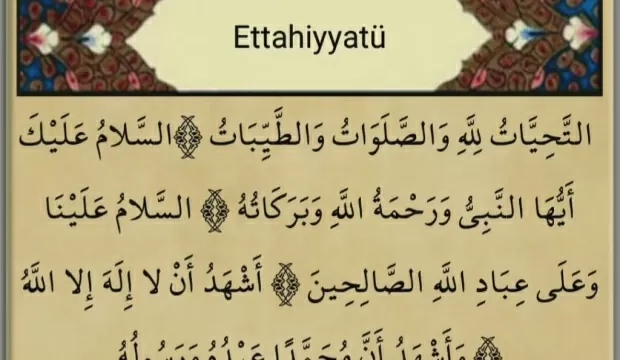 Ettahiyyatü
التَّحِيَّاتُ لِلَّهِ وَالصَّلَوَاتُ وَالطَّيِّبَاتُ ۞ السَّلَامُ عَلَيْكَ
أَيُّهَا النَّبِىُّ وَرَحْمَةُ اللَّهِ وَبَرَكَاتُهُ ۞ السَّلَامُ عَلَيْنَا
وَعَلَى عِبَادِ اللَّهِ الصَّالِحِينَ ۞ أَشْهَدُ أَنْ لا إِلَهَ إِلا اللَّهُ
۞ وَأَشْهَدُ أَنَّ مُحَمَّدًا عَبْدُهُ وَرَسُولُهُ